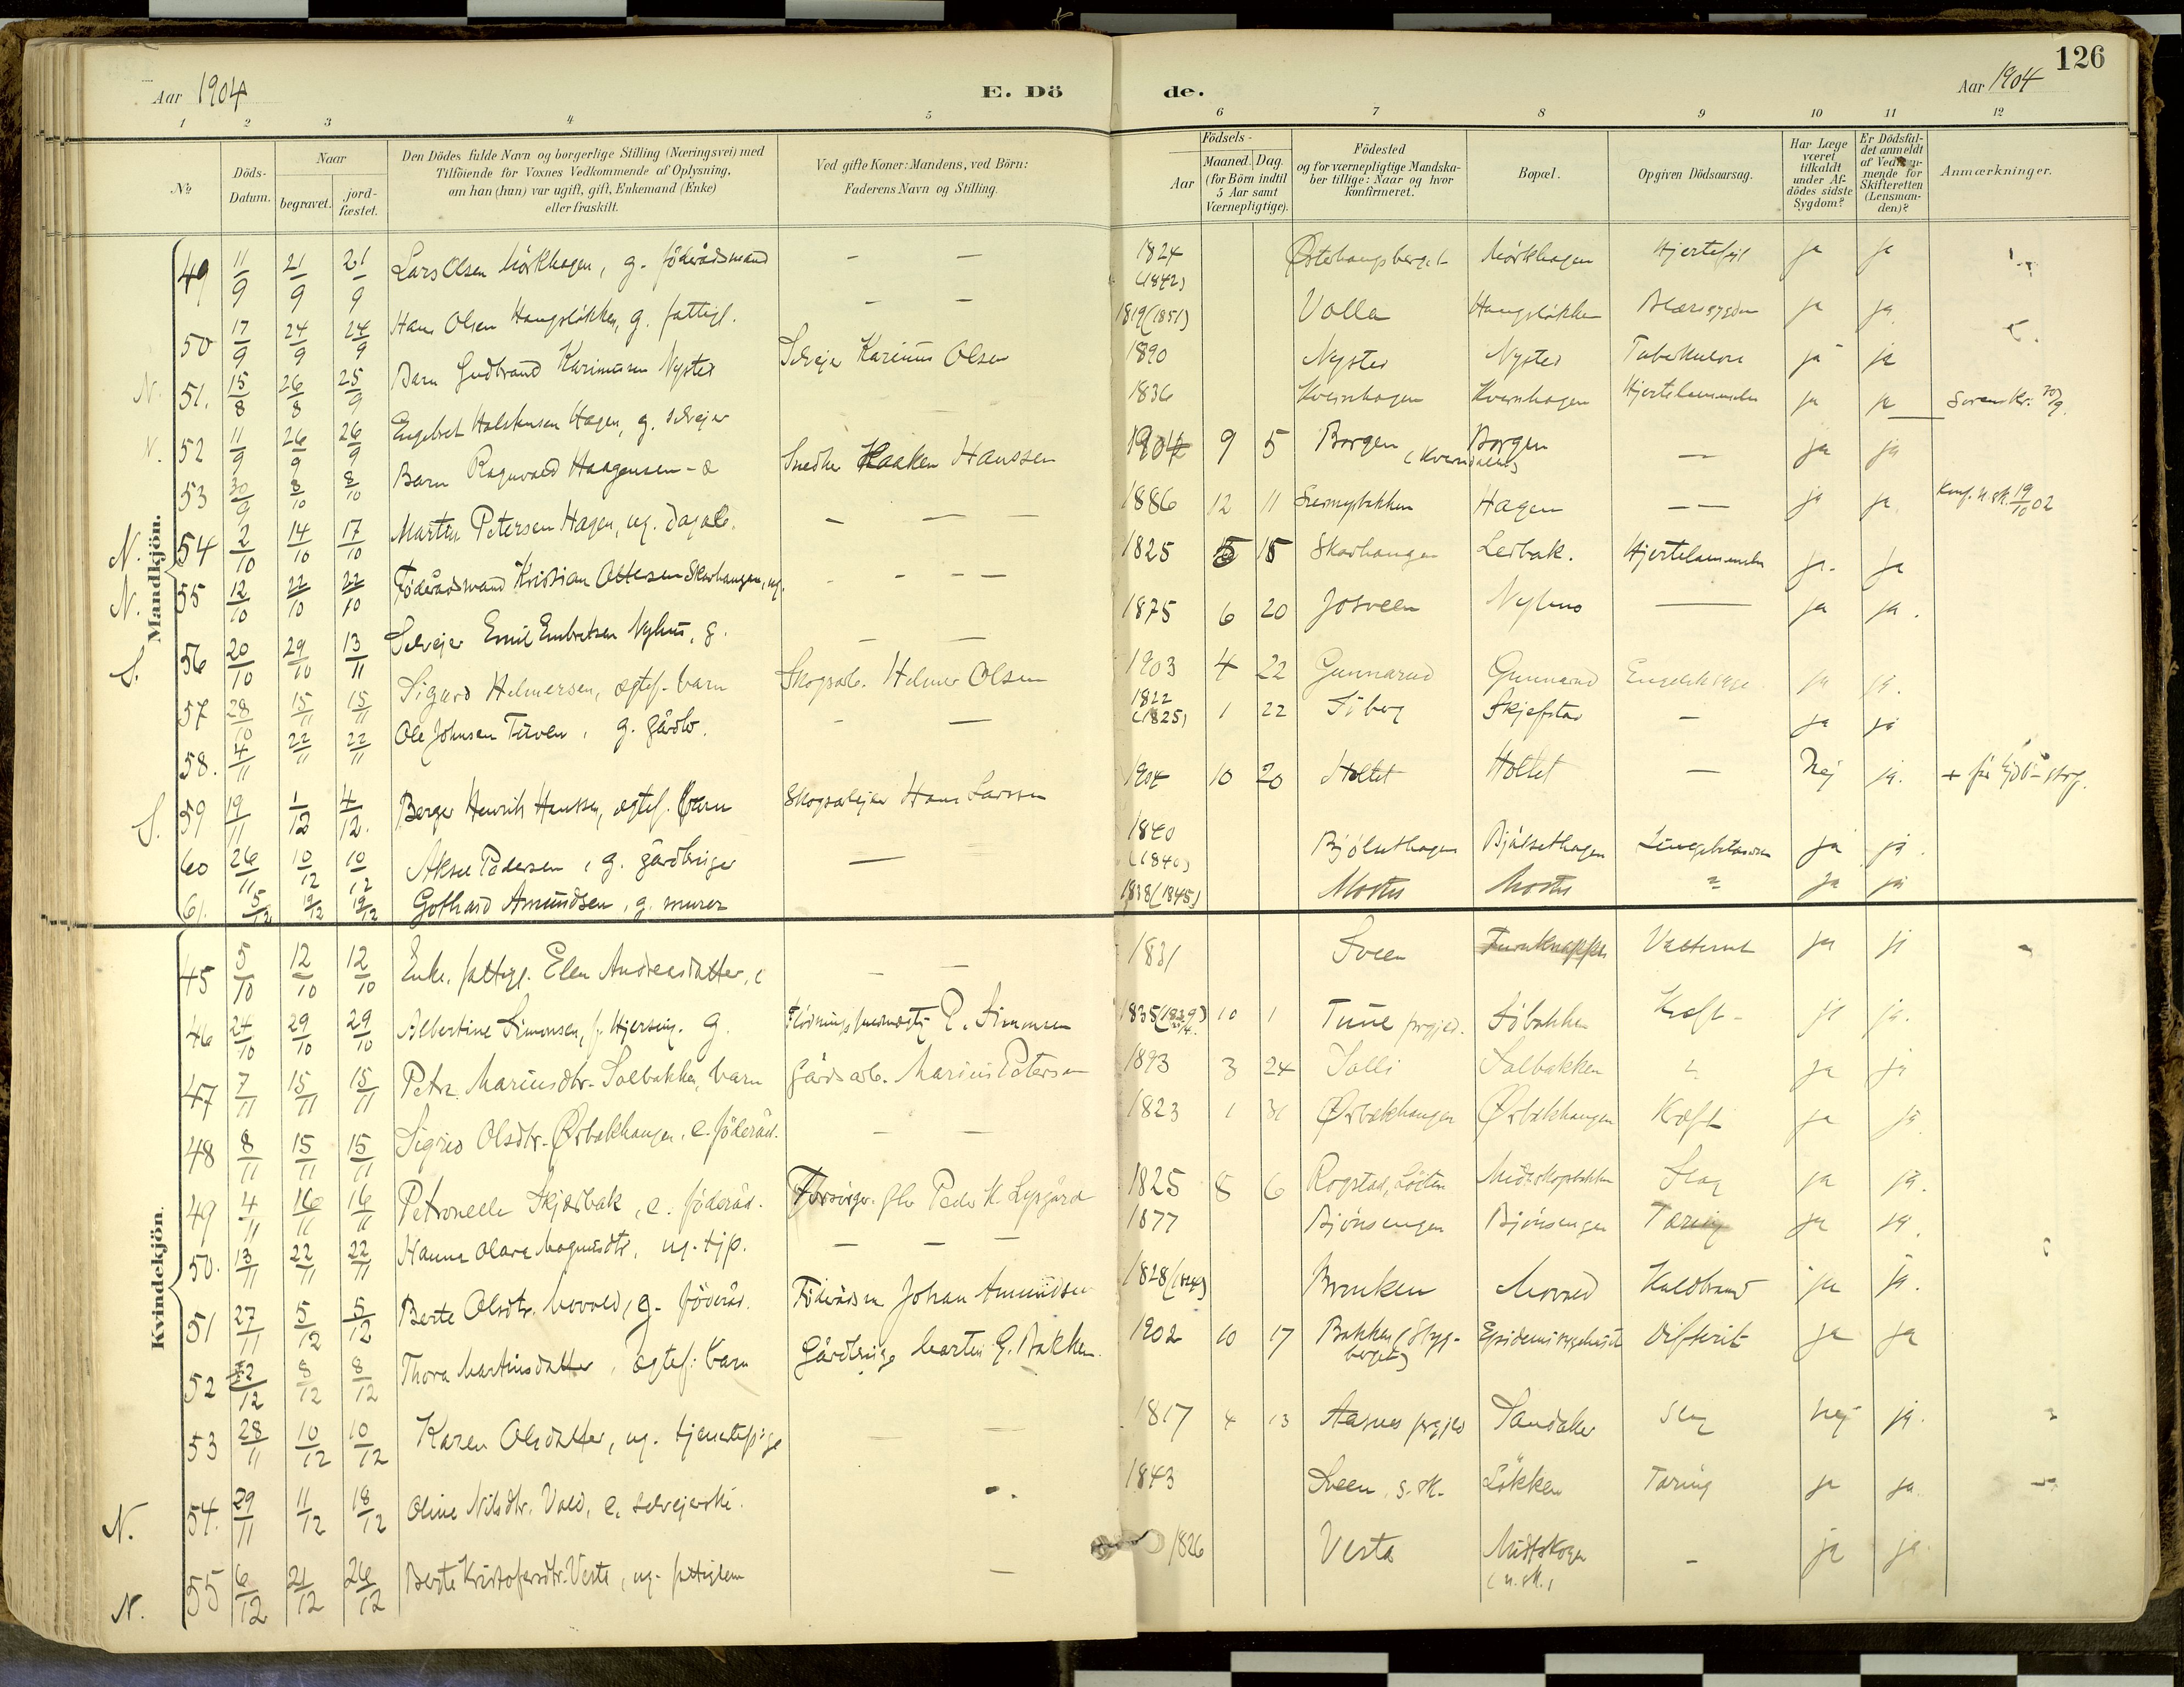 126
Aar 1904
E. Dö
de.
Aar 1904
1 2 3 4 5 6 7 8 9 10 11 12
No
Döds-Datum.
Naar
begravet.
jord-fæstet.
Den Dödes fulde Navn og borgerlige Stilling (Næringsvei) med
Tilföiende for Voxnes Vedkommende af Oplysning,
om han (hun) var ugift, gift, Enkemand (Enke)
eller fraskilt.
Ved gifte Koner: Mandens, ved Börn:
Faderens Navn og Stilling.
Födsels-
Aar
Maaned. Dag.
(for Börn indtil
5 Aar samt
Værnepligtige).
Födested
og for værnepligtige Mandska-
ber tillige: Naar og hvor
konfirmeret.
Bopæl.
Opgiven Dödsaarsag.
Har Læge
været
tilkaldt
under Af-
dödes sidste
Sygdom?
Er Dödsfal-
det anmeldt
af Vedkom-
mende for
Skifteretten
(Lensman-
den)?
Anmærkninger.
Mandkjön.
49 11/9 21/9 21/9 Lars Olsen Mörkhagen, g. föderådsmand — — 1824 (1842) Mörkhagen Hjertefeil ja ja
50 17/9 24/9 24/9 Hans Olsen Haugslökken, g. fattigl. — — 1819 (1851) Volla Haugslökken ja ja
N. 51. 15/8 26/8 25/9 Barn Gudbrand Karinusen Nysted Selveje Karinus Olsen 1890 Nysted Nysted Tuberkulose ja ja
N. 52 11/9 26/9 26/9 Engebret Halstensen Hagen, g. selvejer 1836 Kvernhagen Kvernhagen Hjertelammelse ja ja
53 30/9 8/10 8/10 Barn Ragnvald Haagensen Snedker Haaken Hanssen 1904 9 5 Borgen Borgen — ja ja
N. 54 2/10 14/10 17/10 Martin Petersen Hagen, ug. dagarb. — — — 1886 12 11 Hagen — — ja ja Konf. n. sk. 19/10 02
N. 55 12/10 22/10 22/10 Föderådsmand Kristian Ottersen Skarhaugen, ug. - - — — 1825 15 Skarhaugen Ledbak. Hjertelammelse ja. ja
S. 56 20/10 29/10 13/11 Selvejer Emil Embretsen Nyhus, g. — — 1875 6 20 Josveen Nyhus — ja ja.
57 28/10 15/11 15/11 Sigurd Helmersen, ægtef. barn Skogsarb. Helmer Olsen 1903 4 22 Gunnarud Gunnarud Engelsk syge ja ja.
58. 4/11 22/11 22/11 Ole Johnsen Tuven, g. gårdb. - — 1822 (1825) 1 22 Skjefstad — ja ja
S. 59 19/11 1/12 4/12. Berger Henrik Hanssen, ægtef. barn Skogsarbejer Hans Larssen 1904 10 20 Holtet Holtet — Nej ja.
60 26/11 10/12 10/12 Aksel Pedersen, g. gårdbruger — 1840 (1840) Bjölsethagen Bjölsethagen Lungebetændelse ja ja.
61. 5/12 12/12 12/12 Gothard Amundsen, g. murer 1838 (1845) Mostu Mostu " ja ja
Kvindekjön.
45 5/10 12/10 12/10 Enke, fattigl. Elen Andreasdatter, e — — 1831 Sveen ja ja
46 24/10 29/10 29/10 Albertine Simonsen, f. Hjersing. g. E. Simonsen 1835 10 1 Tune prgjeld. Kræft - ja ja.
47 7/11 15/11 15/11 Petra Mariusdtr. Solbakken, barn Gårdsarb. Marius Petersen 1893 3 24 Solli Solbakken " ja ja
48 8/11 15/11 15/11 Sigrid Olsdtr. Ørbækhaugen, e. föderåd. — — 1823 1 31 Ørbækhaugen Ørbækhaugen Kræft ja ja
49 4/11 16/11 16/11 Petronelle Skjærbak, e. föderåd. 1825 8 6 Rogstad, Löiten Slag ja ja.
50. 13/11 22/11 22/11 Hanna Olava Magnusdtr, ug. tjp. — — — 1877 Bjönsengen Bjönsengen Tæring ja ja.
51 27/11 5/12 5/12 Berte Olsdtr. Movold, g. föderåd. Föderådsm Johan Amundsen 1828 Bronken Movold Koldbrand ja ja.
52 2/12 8/12 8/12 Thora Martinsdatter, ægtef. barn Gårdbruger Martin G. Bakken. 1902 10 17 Bakken (Skyg-berget) Epidemisygehuset Difterit ja ja
53 28/11 10/12 10/12 Karen Olsdatter, ug. tjenestepige — — 1817 4 13 Aasnes prgjeld Sandaker Slag Nej ja.
N. 54. 29/11 11/12 18/12 Oline Nilsdtr. Vold, e. selvejerske. 1843 Sveen, s. sk. Lökken Tæring ja ja.
N. 55 6/12 21/12 26/12 Berte Kristofersdtr. Vesta, ug. fattiglem — 1826 Vesta Midtskogen (n. sk.) — ja ja